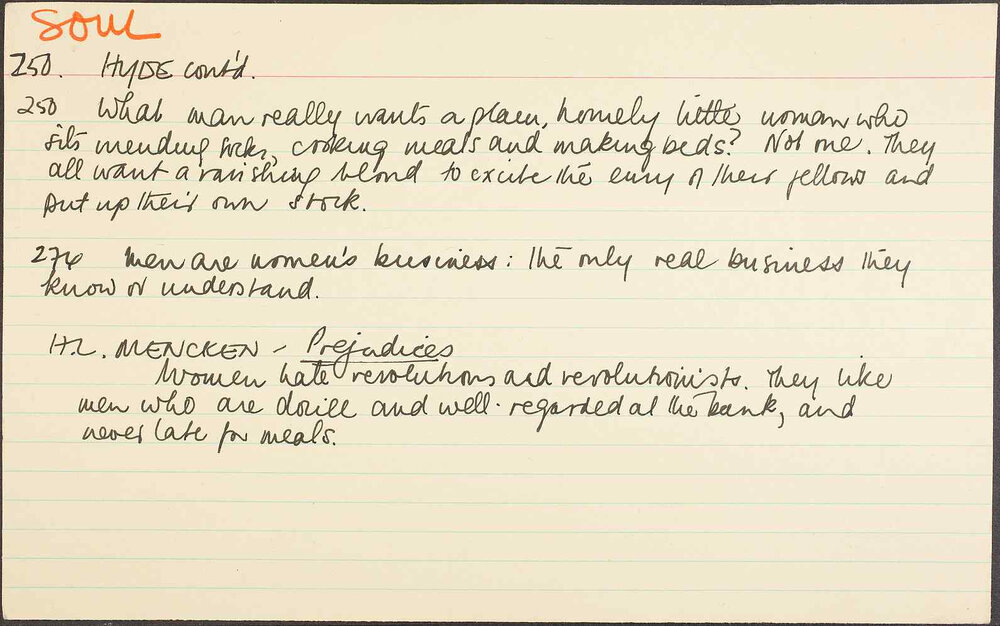 SOUL
250. HYDE cont'd.
250 What man really wants a plain, homely little woman who
sits mending socks, cooking meals and making beds? Not one. They
all want a ravishing blond to excite the envy of their fellows and
put up their own stock.
274 Men are women's business: the only real business they
know or understand.
H.L. MENCKEN - Prejudices
Women hate revolutions and revolutionists. They like
men who are docile and well-regarded at the bank, and
never late for meals.